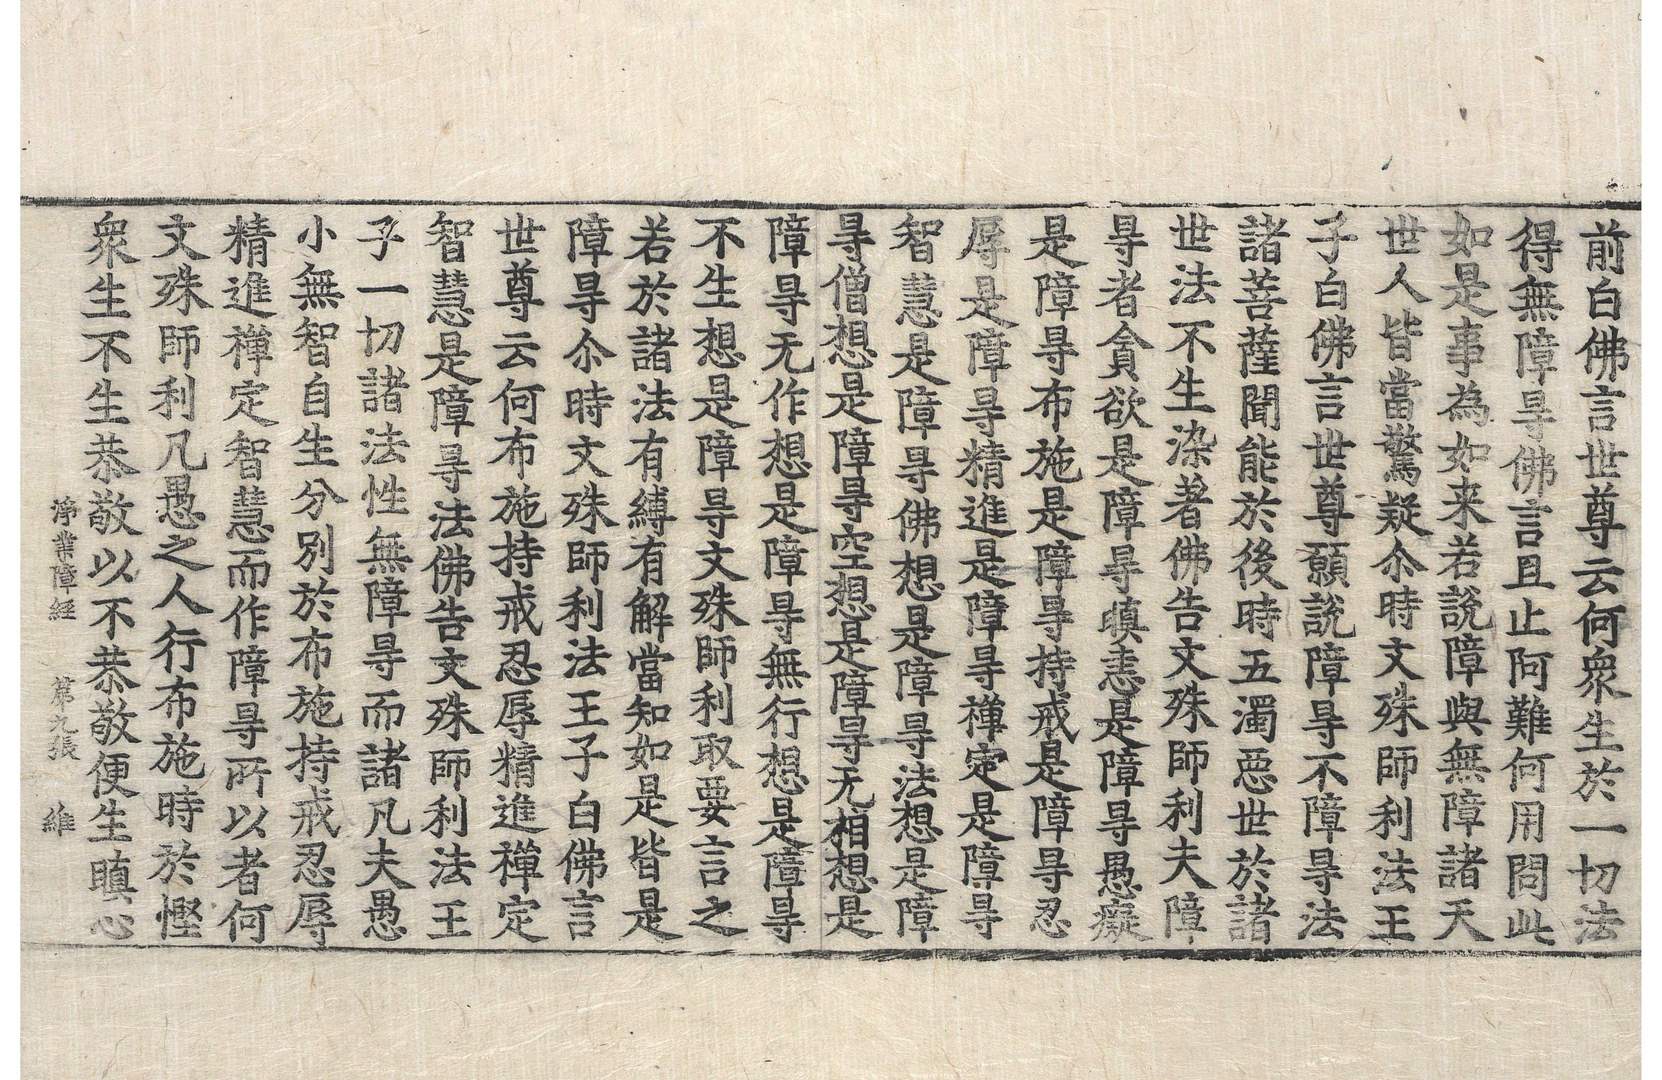 前白佛言世尊云何衆生於一切法
得無障㝵佛言且止阿難何用問此
如是事為如来若說障與無障諸天
世人皆當驚疑尒時文殊師利法王
子白佛言世尊願說障㝵不障㝵法
諸菩薩聞能於後時五濁惡世於諸
世法不生染著佛告文殊師利夫障
㝵者貪欲是障㝵瞋恚是障㝵愚癡
是障㝵布施是障㝵持戒是障㝵忍
辱是障㝵精進是障㝵禪定是障㝵
智慧是障㝵佛想是障㝵法想是障
㝵僧想是障㝵空想是障㝵无相想是
障㝵无作想是障㝵無行想是障㝵
不生想是障㝵文殊師利取要言之
若於諸法有縛有解當知如是皆是
障㝵尒時文殊師利法王子白佛言
世尊云何布施持戒忍辱精進禪定
智慧是障㝵法佛告文殊師利法王
子一切諸法性無障㝵而諸凡夫愚
小無智自生分別於布施持戒忍辱
精進禪定智慧而作障㝵所以者何
文殊師利凡愚之人行布施時於慳
衆生不生恭敬以不恭敬便生瞋心
淨業障經 第九張 維